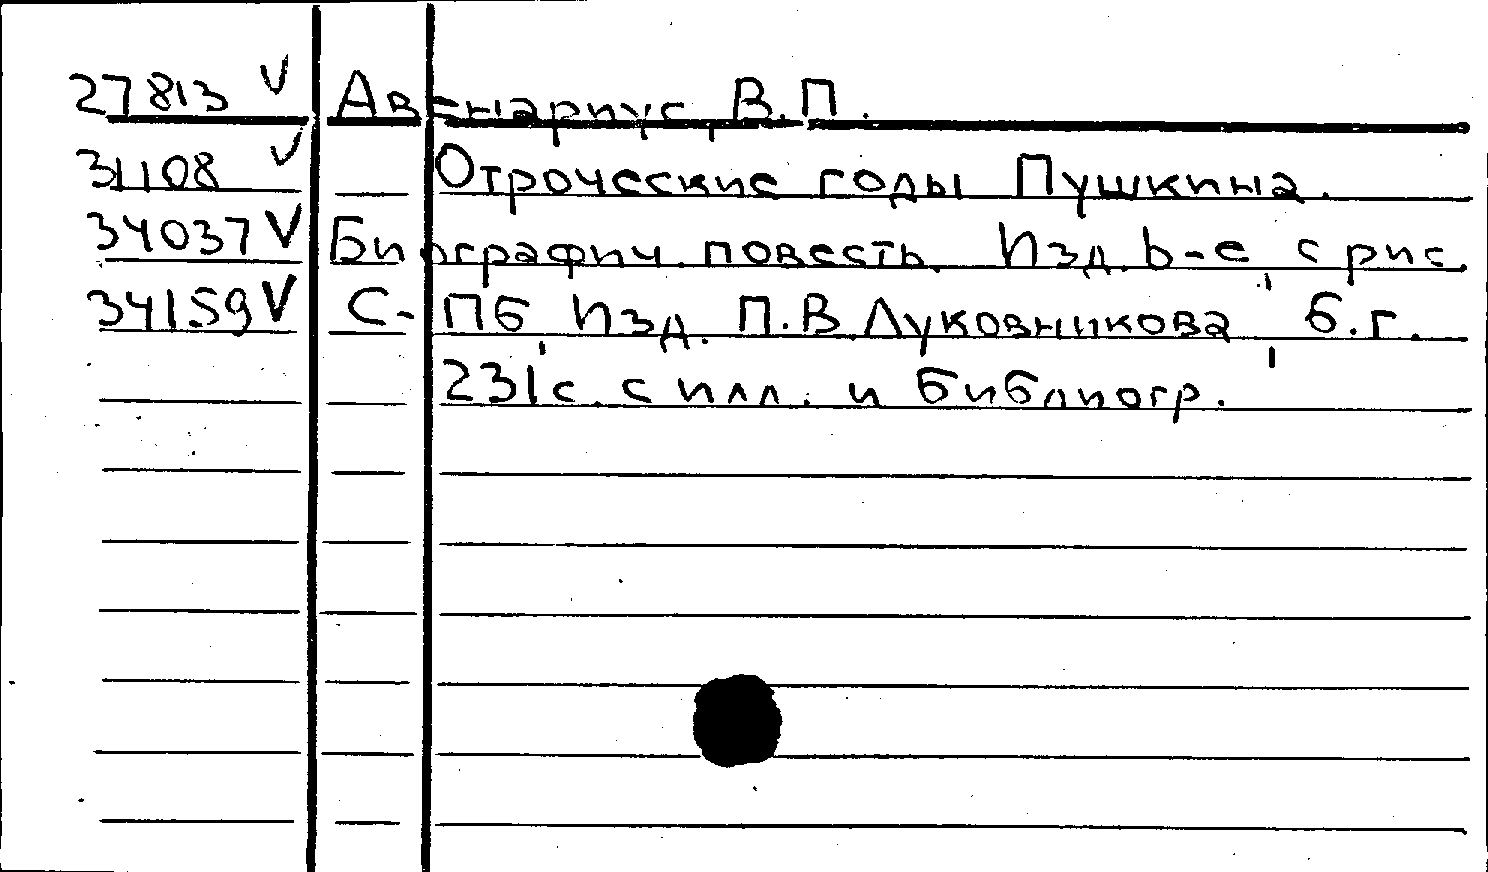 27813 V Авенариус, В.П.
31108 V Отроческие годы Пушкина.
34037 V Биографич. повесть. Изд. 6-е, с рис.
34159 V С-ПБ, Изд. П.В. Луковникова, б.г.
231с. с илл. и библиогр.